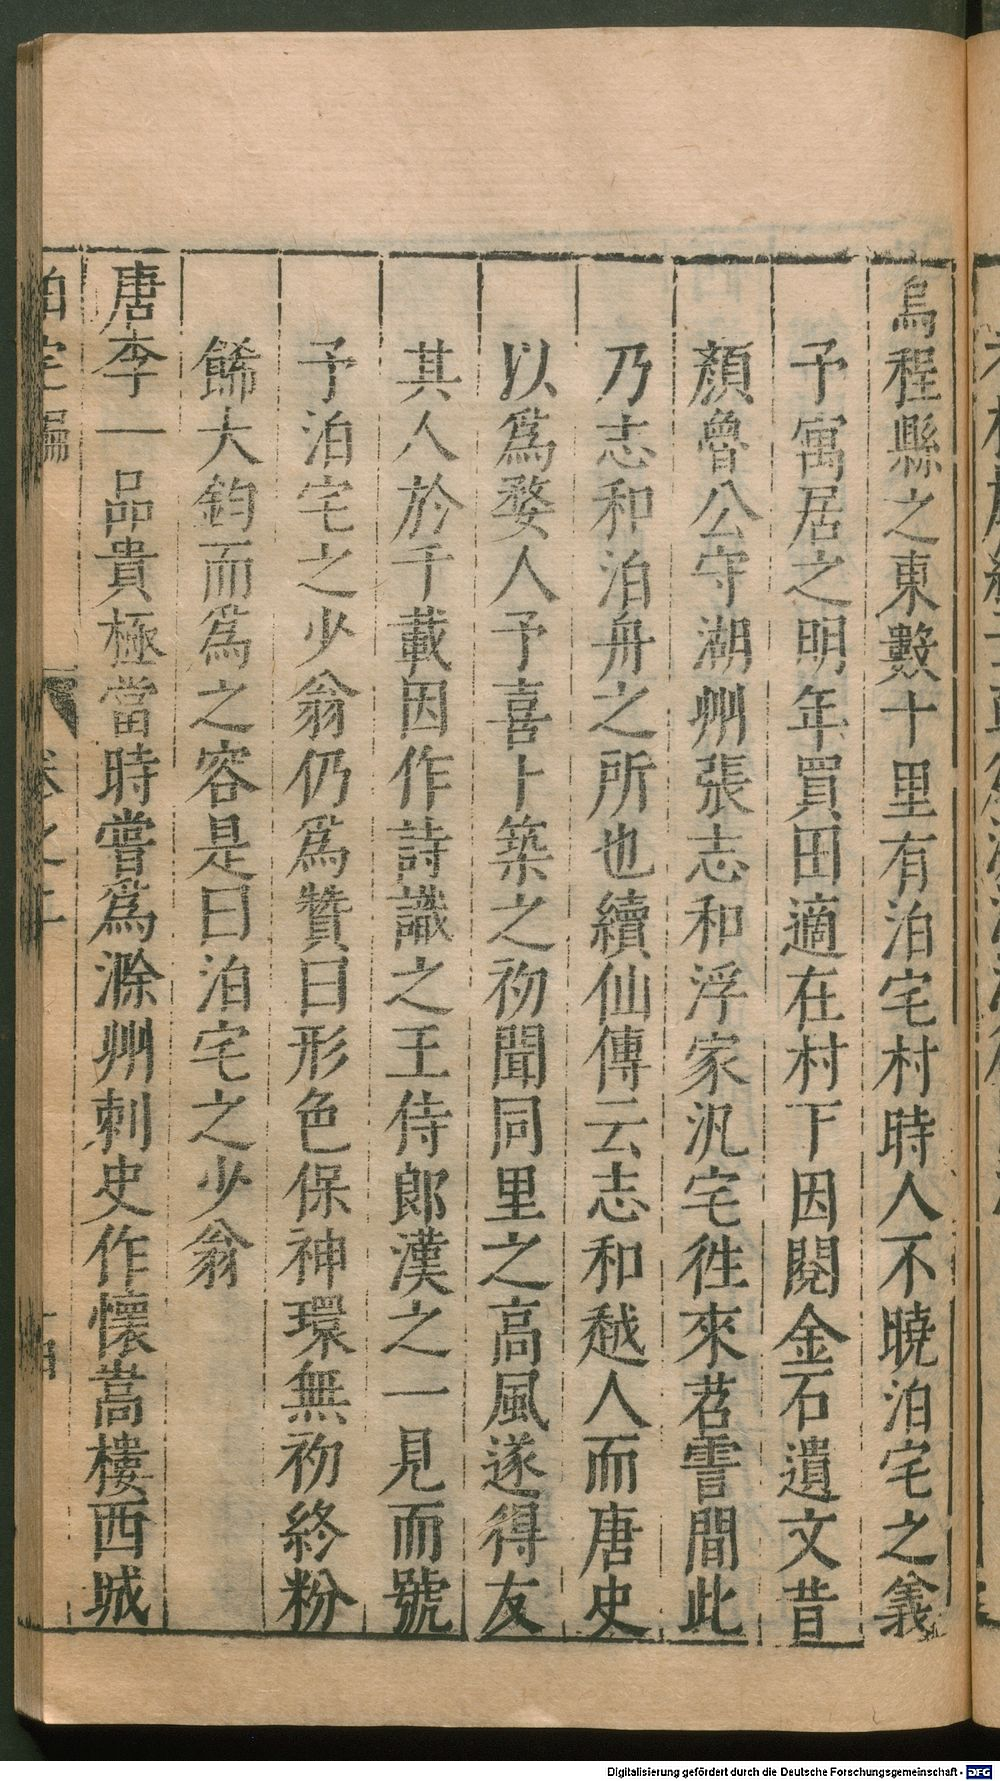 烏程縣之東數十里有泊宅村時人不曉泊宅之義
予寓居之明年買田適在村下因閱金石遺文昔
顏魯公守湖州張志和浮家汎宅徃來苕霅間此
乃志和泊舟之所也續仙傳云志和越人而唐史
以爲婺人予喜卜築之初聞同里之高風遂得友
其人於千載因作詩識之王侍郎漢之一見而號
予泊宅之少翁仍爲贊曰形色保神環無初終粉
餙大鈞而爲之容是曰泊宅之少翁
唐李一品貴極當時嘗爲滁州刺史作懷嵩樓西城
泊宅編
卷之
Digitalisierung gefördert durch die Deutsche Forschungsgemeinschaft - DFG